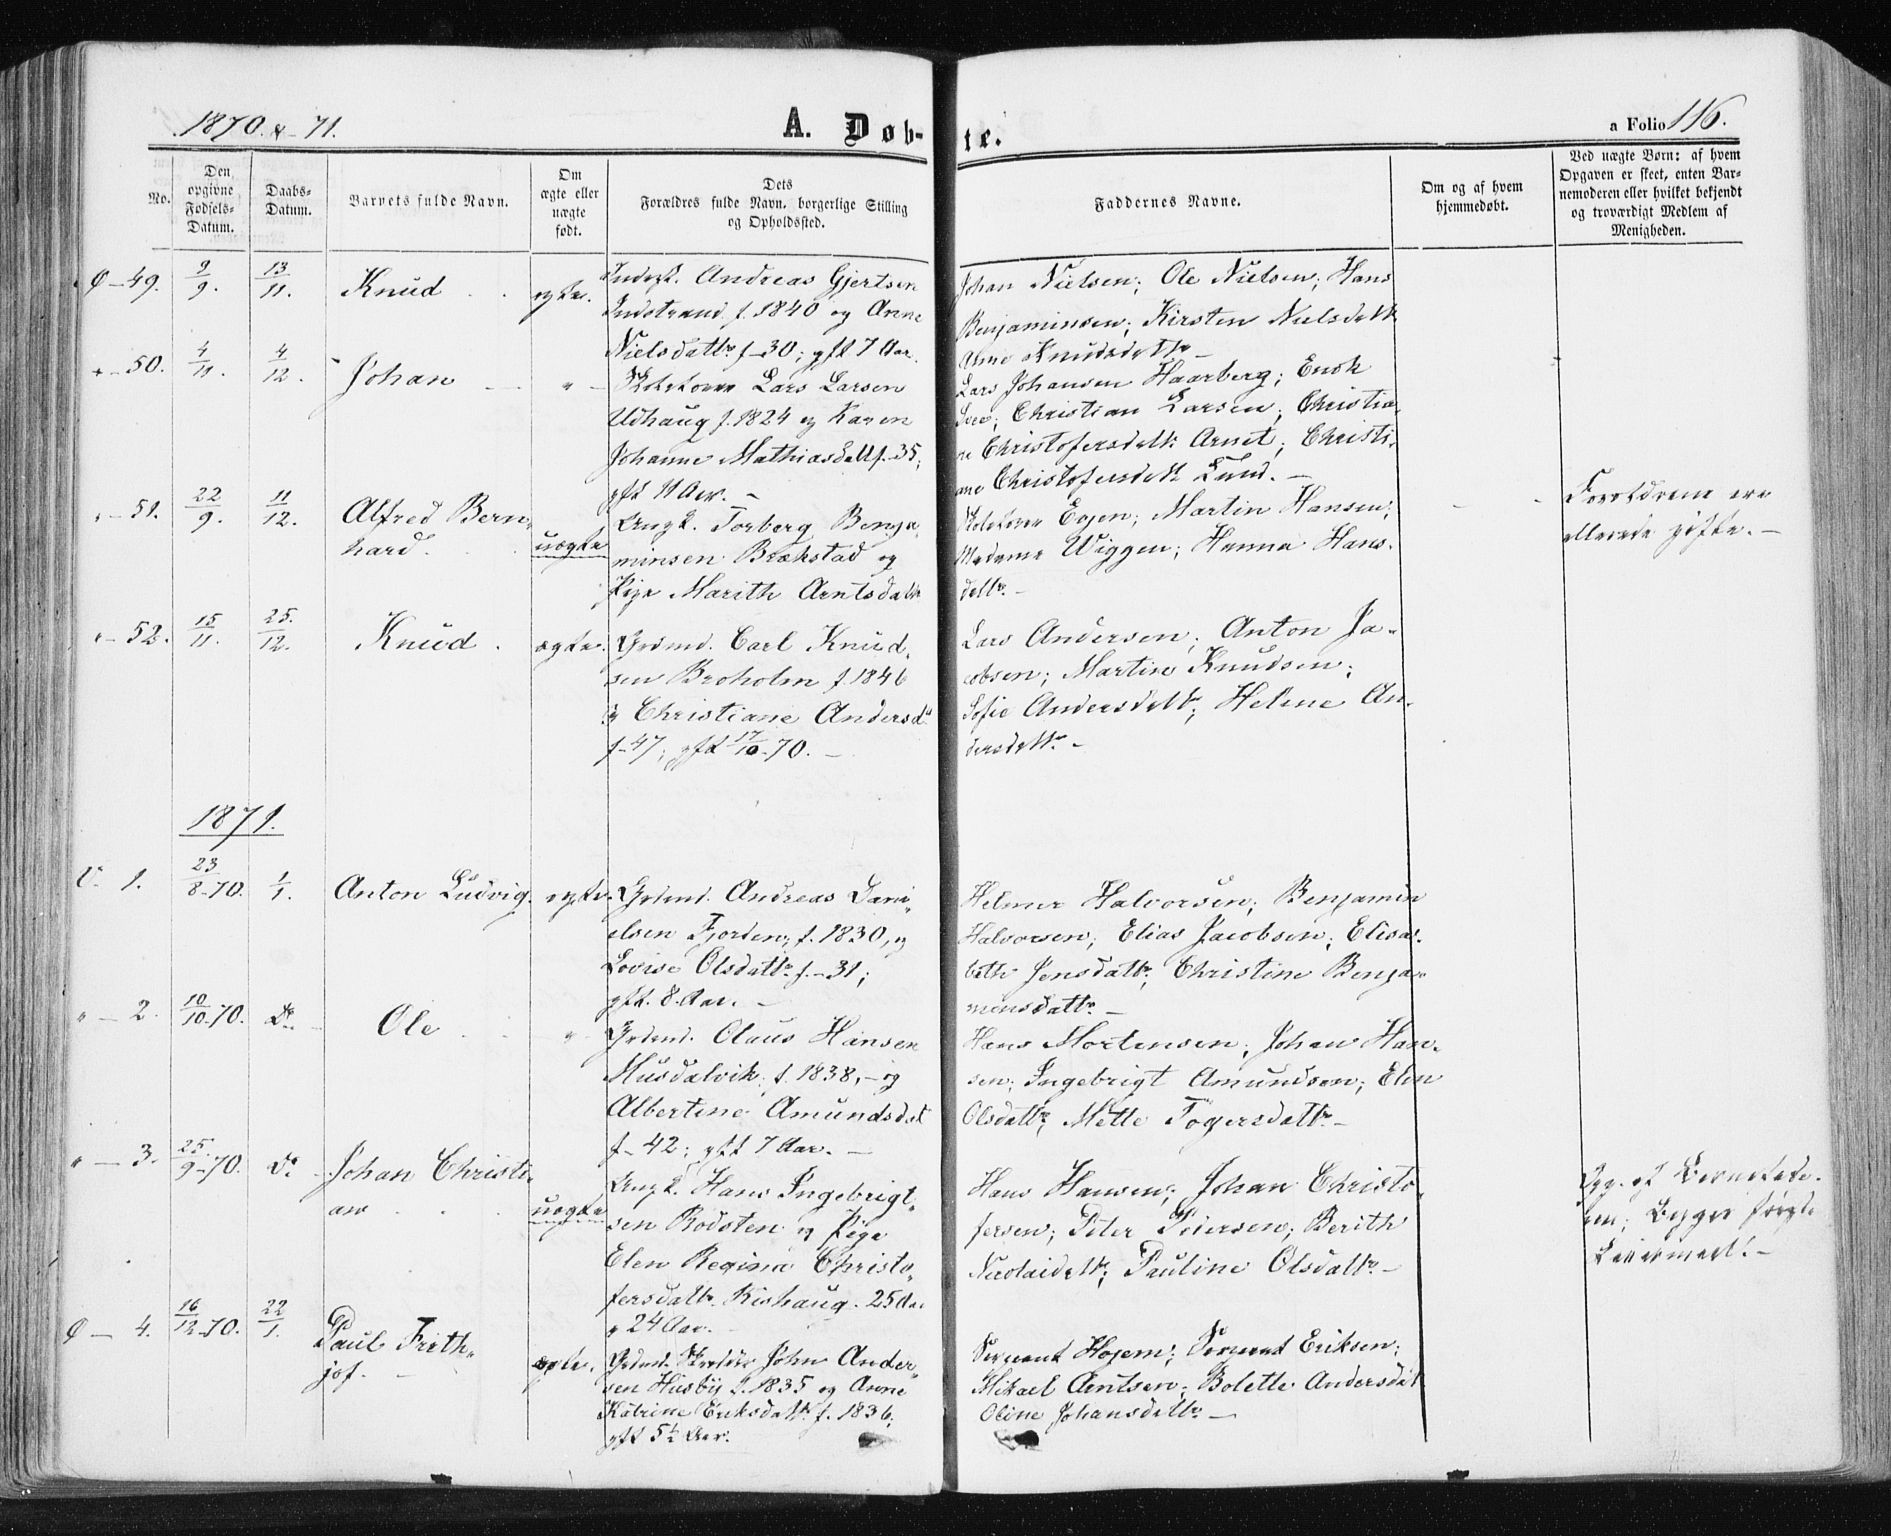 1870 & 71.
A. Døb-
te.
a Folio 116.
No.
Den
opgivne
Fødsels-
Datum.
Daabs-
Datum.
Barnets fulde Navn.
Om
ægte eller
uægte
født.
Dets
Forældres fulde Navn, borgerlige Stilling
og Opholdssted.
Faddernes Navne.
Om og af hvem
hjemmedøbt.
Ved uægte Børn: af hvem
Opgaven er skeet, enten Bar-
nemoderen eller hvilket bekjendt
og troværdigt Medlem af
Menigheden.
Ø - 49. 9/9. 13/11. Knud ægte.
Inderst. Andreas Gjertsen
Indstrand f. 1840 og Anne
Nielsdattr f - 30; gft 7 Aar.
Johan Nielsen; Ole Nielsen; Hans
Benjaminsen; Kirsten Nielsdatt
Anne Knudsdattr -
" - 50. 4/11. 4/12. Johan " -
Lars Larsen
Udhaug f. 1824 og Karen
Johanne Mathiasdatt f. 35;
gft 11 Aar. -
Lars Johansen Haarberg; Enok
Christian Larsen; Christia-
ne Christofersdatt. Arnet; Christi-
ane Christofersdatt Lund. -
" - 51. 22/9. 11/12. Alfred Bern-
hard. uægte
Ungk. Torberg Benja-
minsen Brækstad og
Pige Marith Arntsdatt
Martin Hansen;
Madame Wiggen; Hanna Hans-
dattr. -
Forældrene ere
allerede gifte. -
" - 52. 15/11. 25/12. Knud ægte.
Grdmd. Carl Knud-
sen Broholm f. 1846
og Christiane Andersd.
f - 47; gft 17/10 - 70. -
Lars Andersen; Anton Ja-
cobsen; Martin Knudsen;
Sofie Andersdatt; Helene An-
dersdattr. -
1871.
V. 1. 23/8 - 70. 1/1. Anton Ludvig ægte.
Grdmd. Andreas Dani-
elsen Fjorten, f. 1830, og
Lovise Olsdattr f. - 31;
gft. 8 Aar. -
Helmer Halvorsen; Benjamin
Halvorsen; Elias Jacobsen; Elisa-
beth Jensdattr; Christine Benja-
minsdattr. -
" - 2. 10/10 - 70. Do. Ole "
Grdmd. Olaus Hansen
Musdalvik, f. 1838, - og
Albertine Amundsdat
f - 42; gft 7 Aar. -
Hans Mortensen; Johan Han-
sen; Ingebrigt Amundsen; Elen
Olsdattr; Mette Fogersdattr. -
" - 3. 25/9 - 70. Do - Johan Christi-
an uægte
Ungk. Hans Ingebrigt-
sen Rodsten og Pige
Elen Regina Christo-
fersdattr. Rishaug. 25 Aar
og 24 Aar. -
Hans Hansen; Johan Christo-
fersen; Peter Petersen; Berith
Nicolaidatt; Pauline Olsdattr. -
Opg. af Barnefade-
ren; Begges første
Leiermaal! -
Ø - 4. 16/12 - 70. 22/1. Paul Frith-
jof. - ægte.
Grdmd. John Ander-
sen Husby f. 1835 og Anne
Katrine Eriksdattr f. 1836,
gft 5½ Aar.
Sergeant Hojem; Sergeant Eriksen;
Mikael Arntsen; Bolette Andersdat
Oline Johansdattr. -